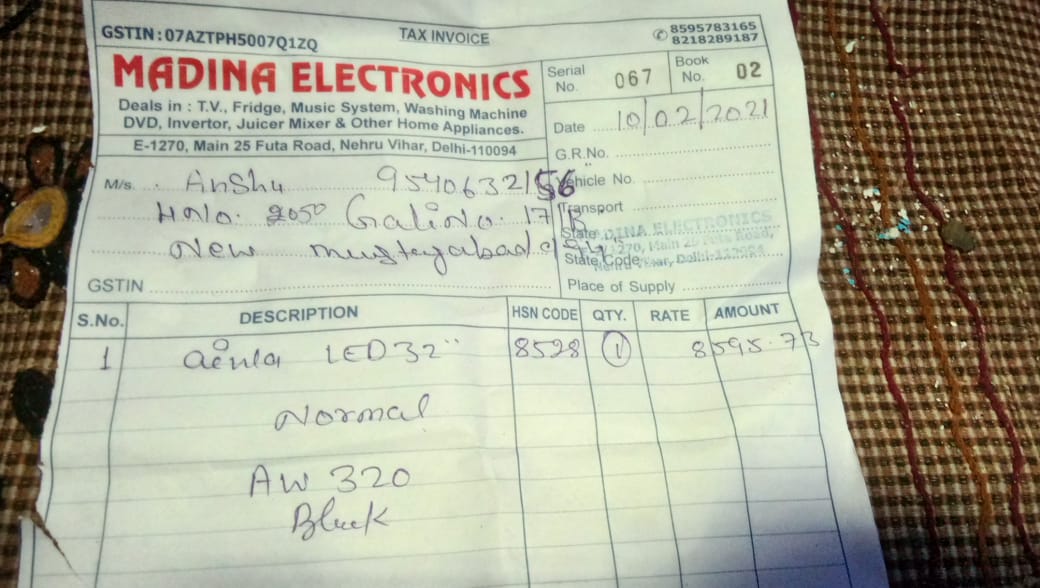 GSTIN : 07AZTPH5007Q1ZQ TAX INVOICE 8595783165
8218289187
MADINA ELECTRONICS
Deals in : T.V., Fridge, Music System, Washing Machine
DVD, Invertor, Juicer Mixer & Other Home Appliances.
E-1270, Main 25 Futa Road, Nehru Vihar, Delhi-110094
Serial No. 067 Book No. 02
Date 10/02/2021
G.R.No.
Vehicle No.
Transport
State
State Code
Place of Supply
MADINA ELECTRONICS
E-1270, Main 25 Futa Road,
Nehru Vihar, Delhi-110094
M/s. Anshu 9540632156
H.No. 2050 Gali No. 17
New mustafabad
GSTIN
S.No. DESCRIPTION HSN CODE QTY. RATE AMOUNT
1 LED 32" 8528 1 8595.73
Normal
AW 320
Black